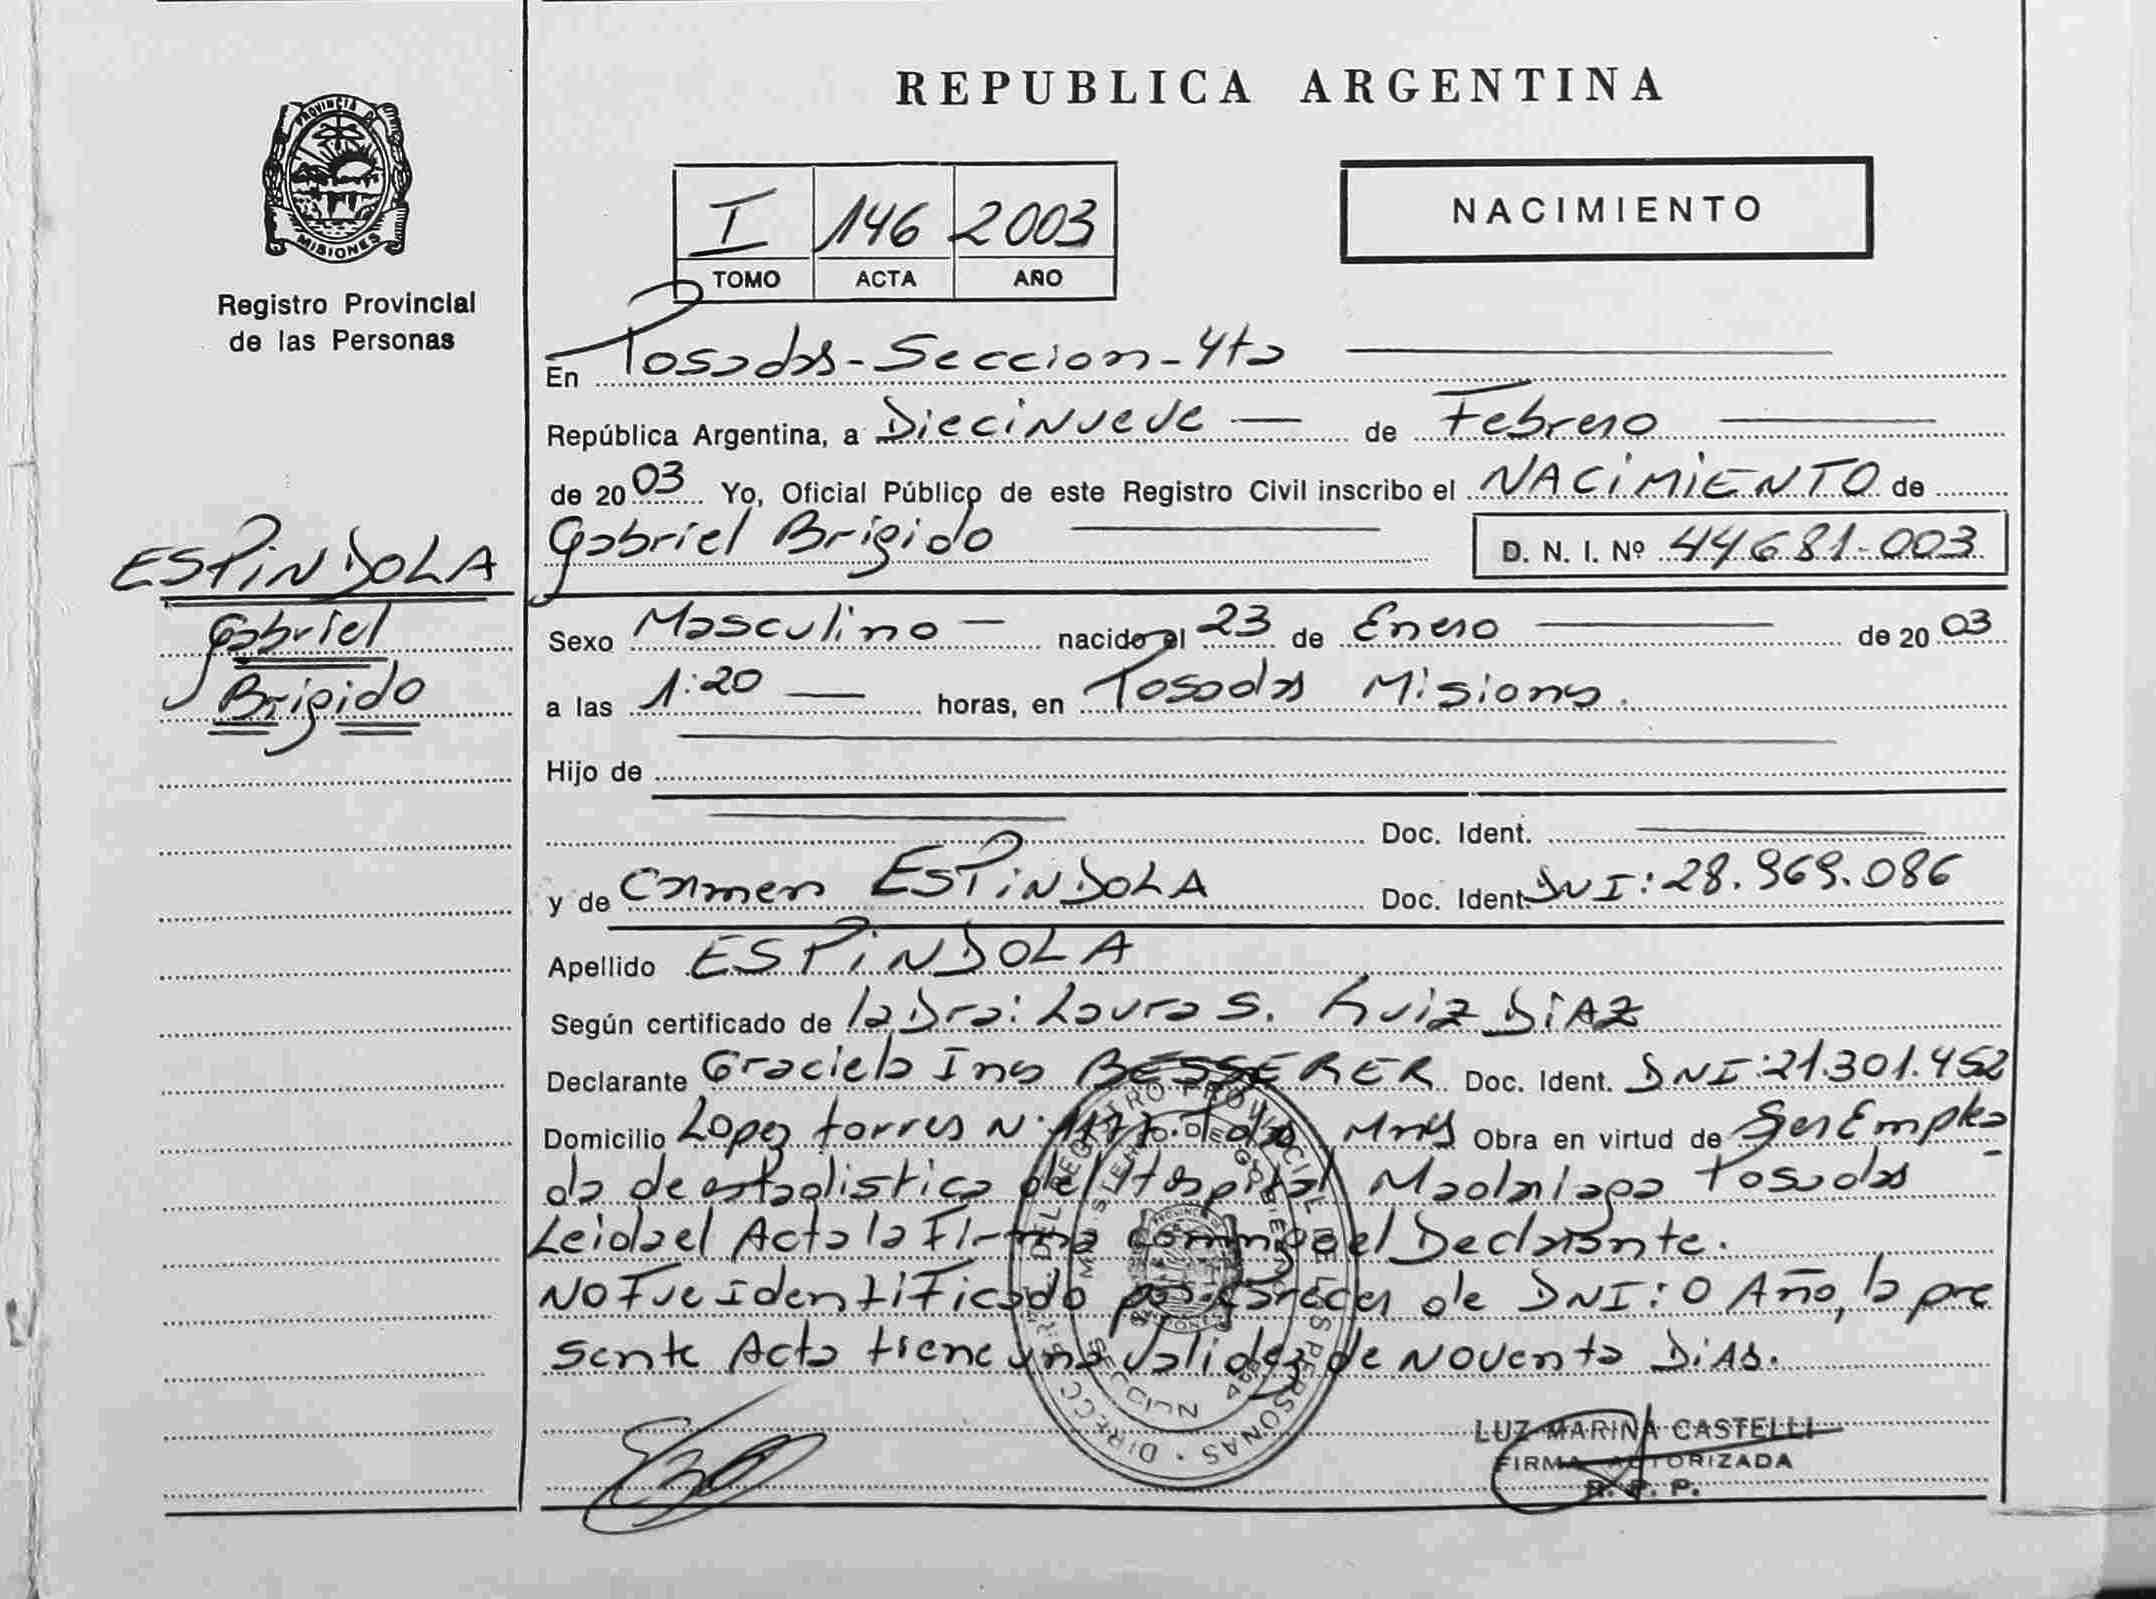 PROVINCIA DE
MISIONES
Registro Provincial
de las Personas
ESPiNDOLA
Gabriel
Brigido
REPUBLICA ARGENTINA
I 146 2003
TOMO ACTA AÑO
NACIMIENTO
En Posadas-Seccion-4ta
República Argentina, a Diecinueve de Febrero
de 2003 Yo, Oficial Público de este Registro Civil inscribo el NACiMiENTO de
Gabriel Brigido D. N. I. Nº 44681-003
Sexo Masculino nacido el 23 de Enero de 2003
a las 1:20 horas, en Posadas Misiones.
Hijo de
Doc. Ident.
y de Carmen ESPiNDOLA Doc. Ident. DNI: 28.969.086
Apellido ESPiNDOLA
Según certificado de la Dra: Laura S. Ruiz DiAZ
Declarante Graciela Ines BESSERER Doc. Ident. DNI: 21.301.452
Domicilio Lopez torres N° Pdas Mnes Obra en virtud de Ser Emplea
da de estadistica del Hospital Madariaga Posadas
Leida el Acta la Firma conmigo el Declarante.
NO Fue identiFicado por carecer de DNI: 0 Año, la pre
sente Acta tiene una validez de Noventa DiAs.
LUZ MARINA CASTELLI
FIRMA AUTORIZADA
R. P. P.